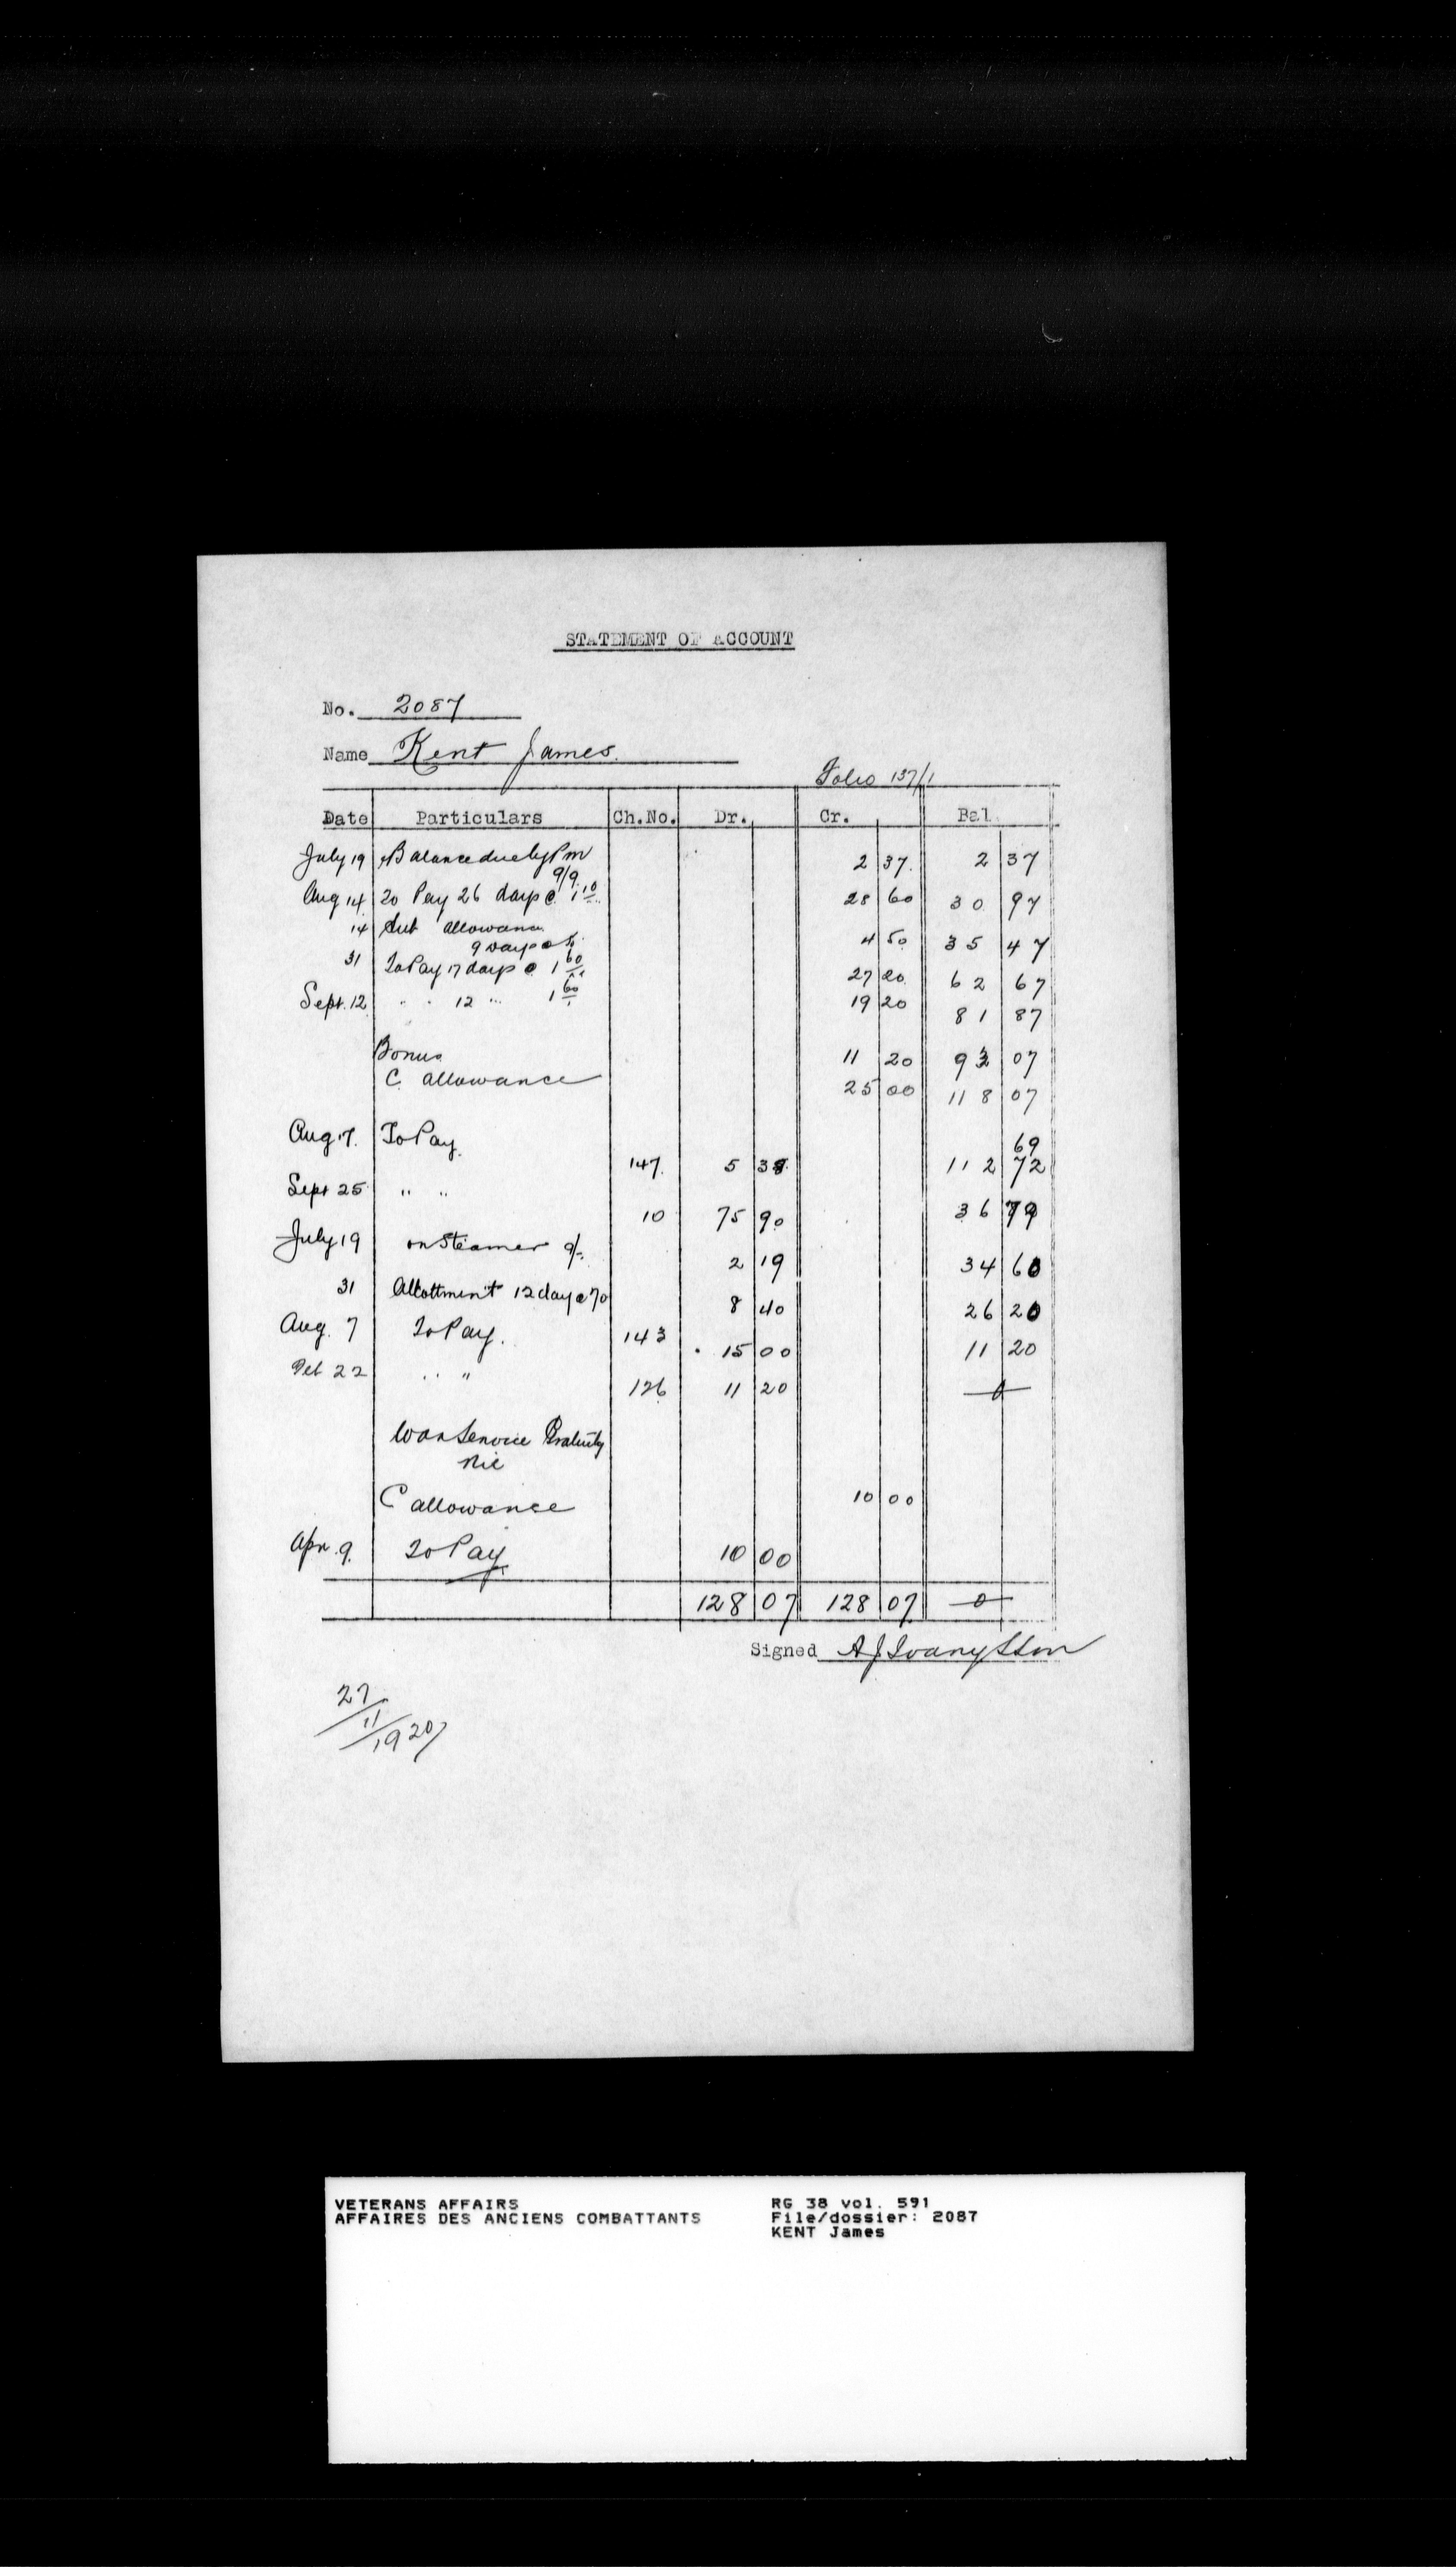 STATEMENT OF ACCOUNT
No. 2087
Name Kent James.
Folio 137/1
Date Particulars Ch.No. Dr. Cr. Bal.
July 19 Balance due by P m 2 37 2 37
9/9
Aug 14 To Pay 26 days @ 1 10 28 60 30 97
14 Sub Allowance
9 days @ 50 4 50 35 47
31 To Pay 17 days @ 1 60 27 20 62 67
Sept. 12 " " 12 " 1 60 19 20 81 87
Bonus 11 20 93 07
C. allowance 25 00 118 07
Aug 17. To Pay. 147. 5 38 112 69
72
Sept 25 " " 10 75 90 36 79
July 19 on Steamer 9/- 2 19 34 60
31 Allottment 12 day @ 70 8 40 26 20
Aug. 7 To Pay. 143 15 00 11 20
Oct 22 " " 126 11 20 0
War Service Gratuity
nil
C allowance 10 00
Apr. 9. To Pay 10 00
128 07 128 07 0
Signed
27/11/1920
VETERANS AFFAIRS RG 38 vol. 591
AFFAIRES DES ANCIENS COMBATTANTS File/dossier: 2087
KENT James